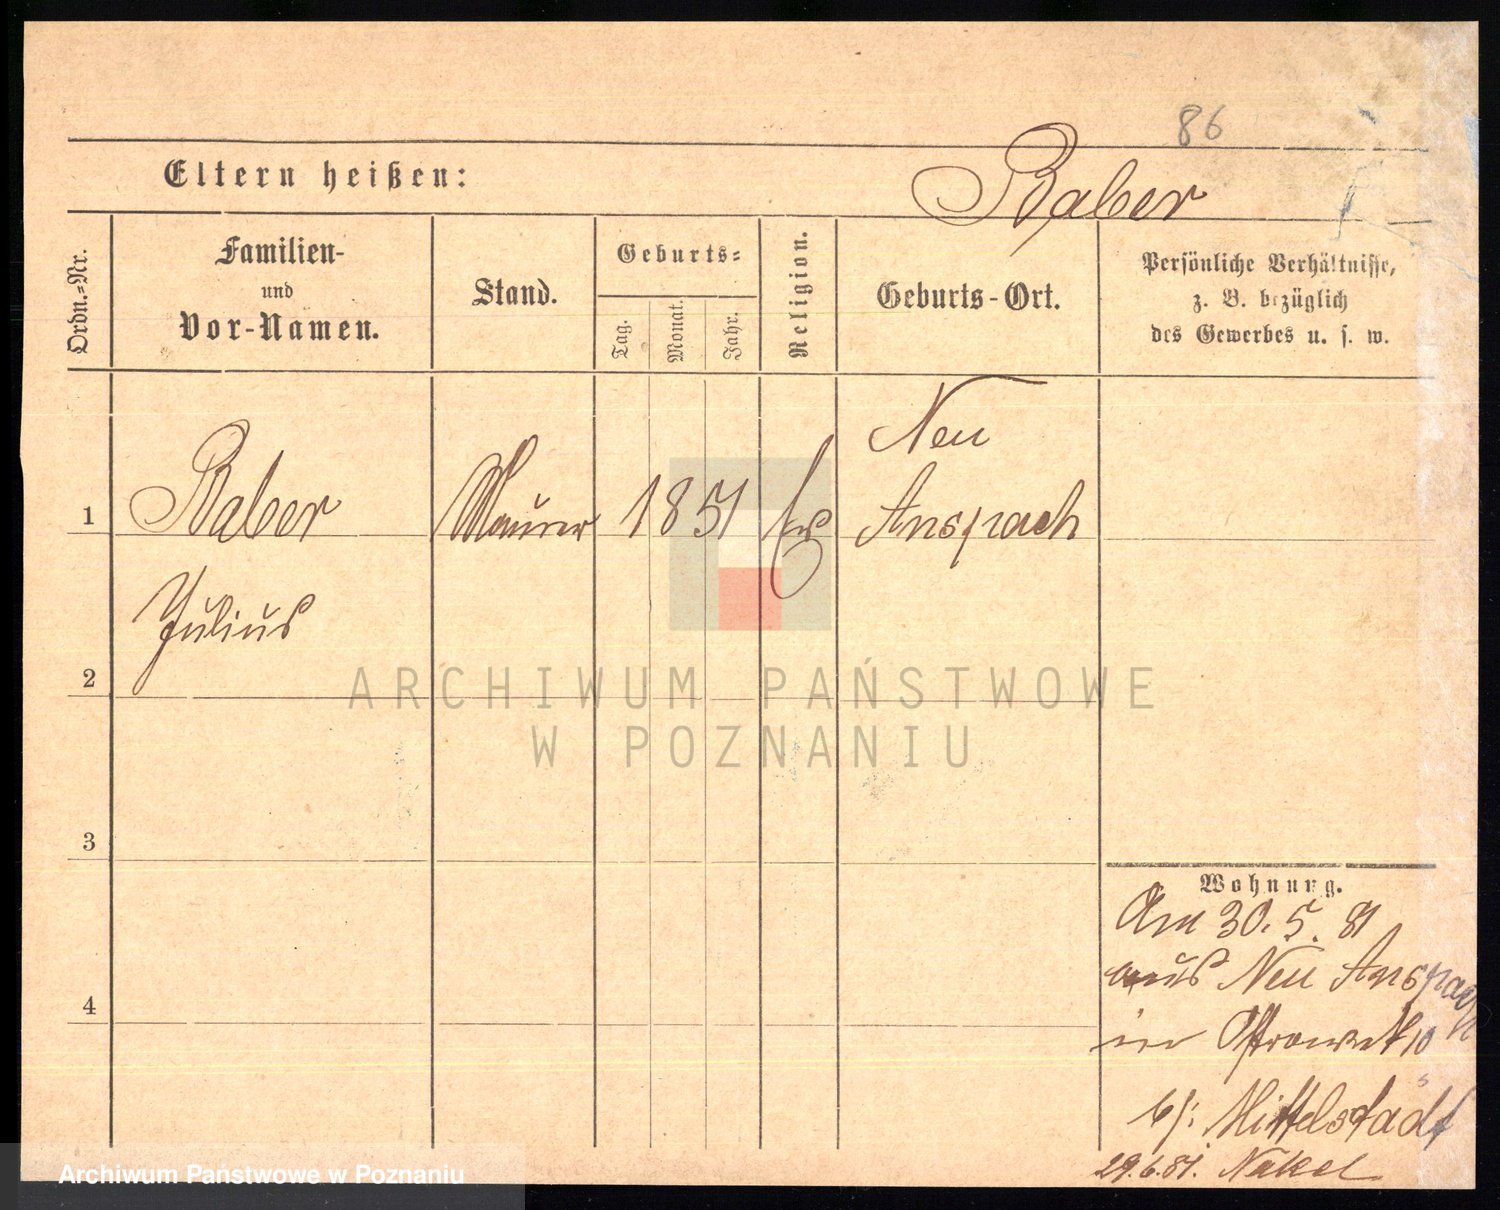 86
Eltern heißen:
Baber
Ordn.-Nr.
Familien-
und
Vor-Namen.
Stand.
Geburts-
Tag.
Monat.
Jahr.
Religion.
Geburts-Ort.
Persönliche Verhältnisse,
z. B. bezüglich
des Gewerbes u. s. w.
1
Baber
Maurer
1851
Neu
Anspach
Julius
2
3
4
Wohnung.
Am 30. 5. 81
aus Neu Anspach
in Ostrowek 10
b/: Mittelstädt
29.6.81. Nakel
ARCHIWUM PAŃSTWOWE
W POZNANIU
Archiwum Państwowe w Poznaniu